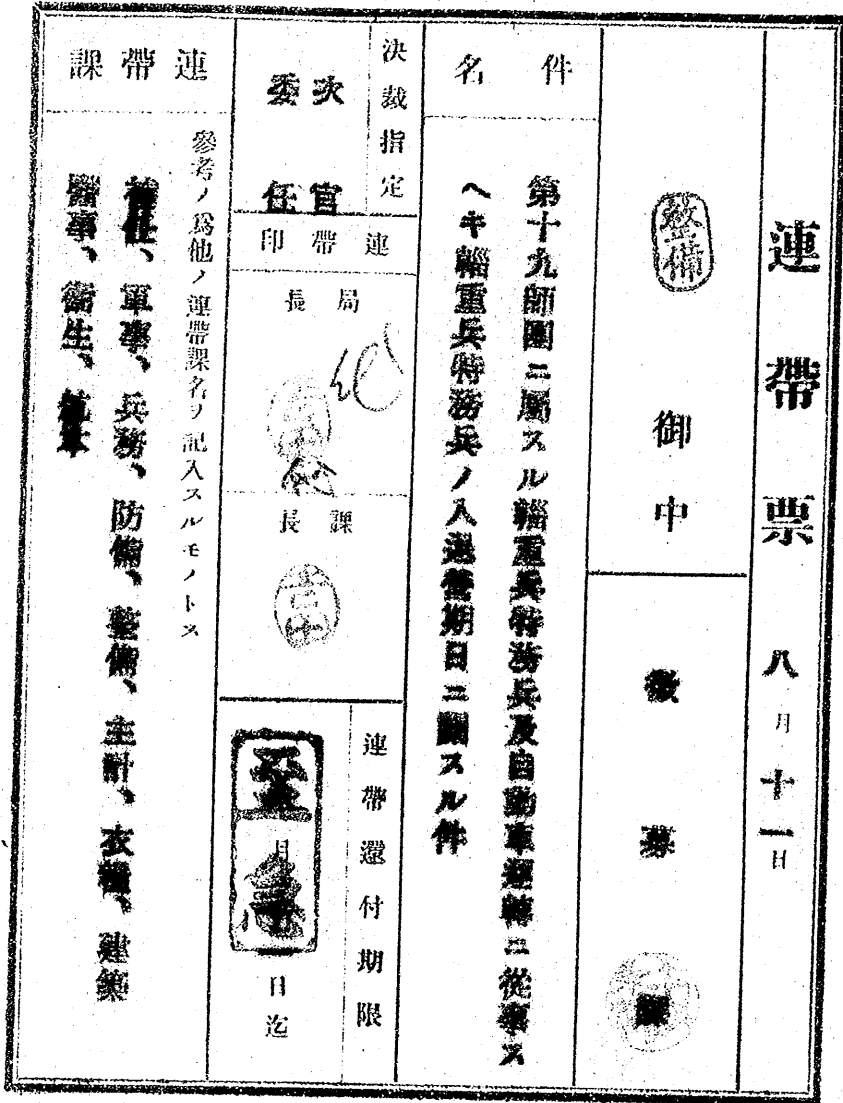 連帶票 八月十一日
整備 御中
徵募課
件名
第十九師團ニ屬スル輜重兵特務兵及自動車運轉ニ從事ス
ヘキ輜重兵特務兵ノ入退營期日ニ關スル件
決裁指定
次官
委任
連帶印
局長
課長
連帶還付期限
至急
月 日迄
連帶課
參考ノ爲他ノ連帶課名ヲ記入スルモノトス
補任、軍事、兵務、防備、整備、主計、衣糧、建築
醫事、衞生、